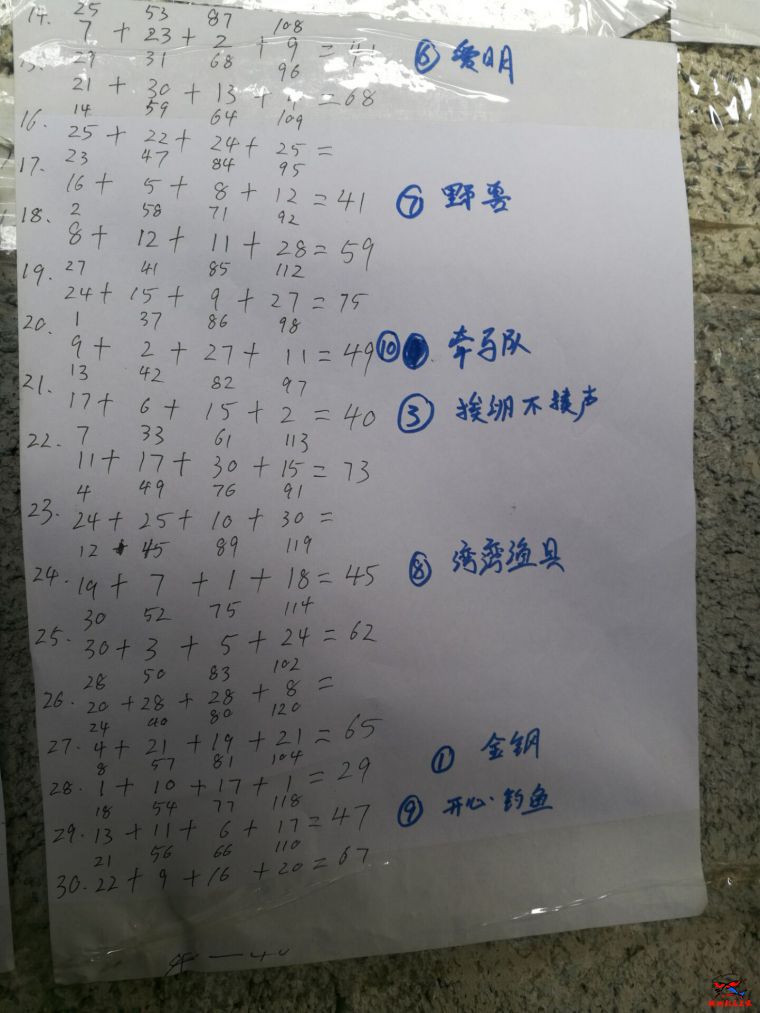 25 53 87 108
14. 7 + 23 + 2 + 9 = 41 ⑥ 爱明
29 31 68 96
15. 21 + 30 + 13 + 4 = 68
14 59 64 109
16. 25 + 22 + 24 + 25 =
23 47 84 95
17. 16 + 5 + 8 + 12 = 41 ⑦ 野兽
2 58 71 92
18. 8 + 12 + 11 + 28 = 59
27 41 85 112
19. 24 + 15 + 9 + 27 = 75
1 37 86 98
20. 9 + 2 + 27 + 11 = 49 ⑩ 牵马队
13 42 82 97
21. 17 + 6 + 15 + 2 = 40 ③ 挨刬不揍声
7 33 61 113
22. 11 + 17 + 30 + 15 = 73
4 49 76 91
23. 24 + 25 + 10 + 30 =
12 45 89 119
24. 19 + 7 + 1 + 18 = 45 ⑧ 渔具
30 52 75 114
25. 30 + 3 + 5 + 24 = 62
28 50 83 102
26. 20 + 28 + 28 + 8 =
24 40 80 120
27. 4 + 21 + 19 + 21 = 65 ① 金钥
8 57 81 104
28. 1 + 10 + 17 + 1 = 29
18 54 77 118 ⑨ 开心·钓鱼
29. 13 + 11 + 6 + 17 = 47
21 56 66 110
30. 22 + 9 + 16 + 20 = 67